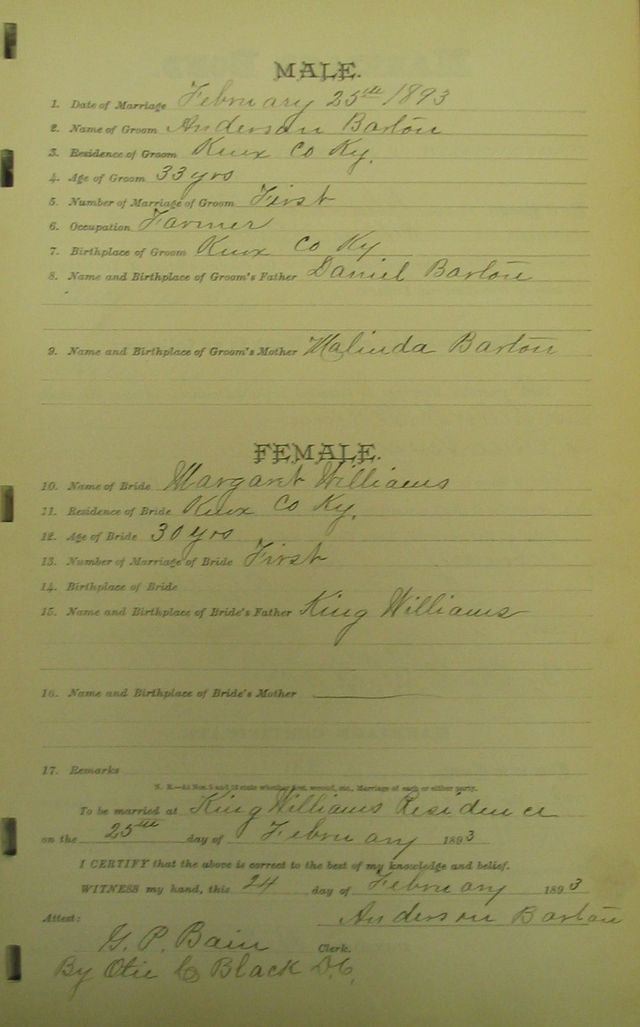 MALE.
1. Date of Marriage February 25th 1893
2. Name of Groom Anderson Barton
3. Residence of Groom Knox Co Ky.
4. Age of Groom 33 yrs
5. Number of Marriage of Groom First
6. Occupation Farmer
7. Birthplace of Groom Knox Co Ky
8. Name and Birthplace of Groom's Father Daniel Barton
9. Name and Birthplace of Groom's Mother Malinda Barton
FEMALE.
10. Name of Bride Margaret Williams
11. Residence of Bride Knox Co Ky.
12. Age of Bride 30 yrs
13. Number of Marriage of Bride First
14. Birthplace of Bride
15. Name and Birthplace of Bride's Father King Williams
16. Name and Birthplace of Bride's Mother
17. Remarks
N. B.—At Nos. 5 and 13 state whether first, second, etc., Marriage of each or either party.
To be married at King Williams Residence
on the 25th day of February 1893
I CERTIFY that the above is correct to the best of my knowledge and belief.
WITNESS my hand, this 24 day of February 1893
Attest: Anderson Barton
G. P. Bain Clerk.
By Otie Black D.C.